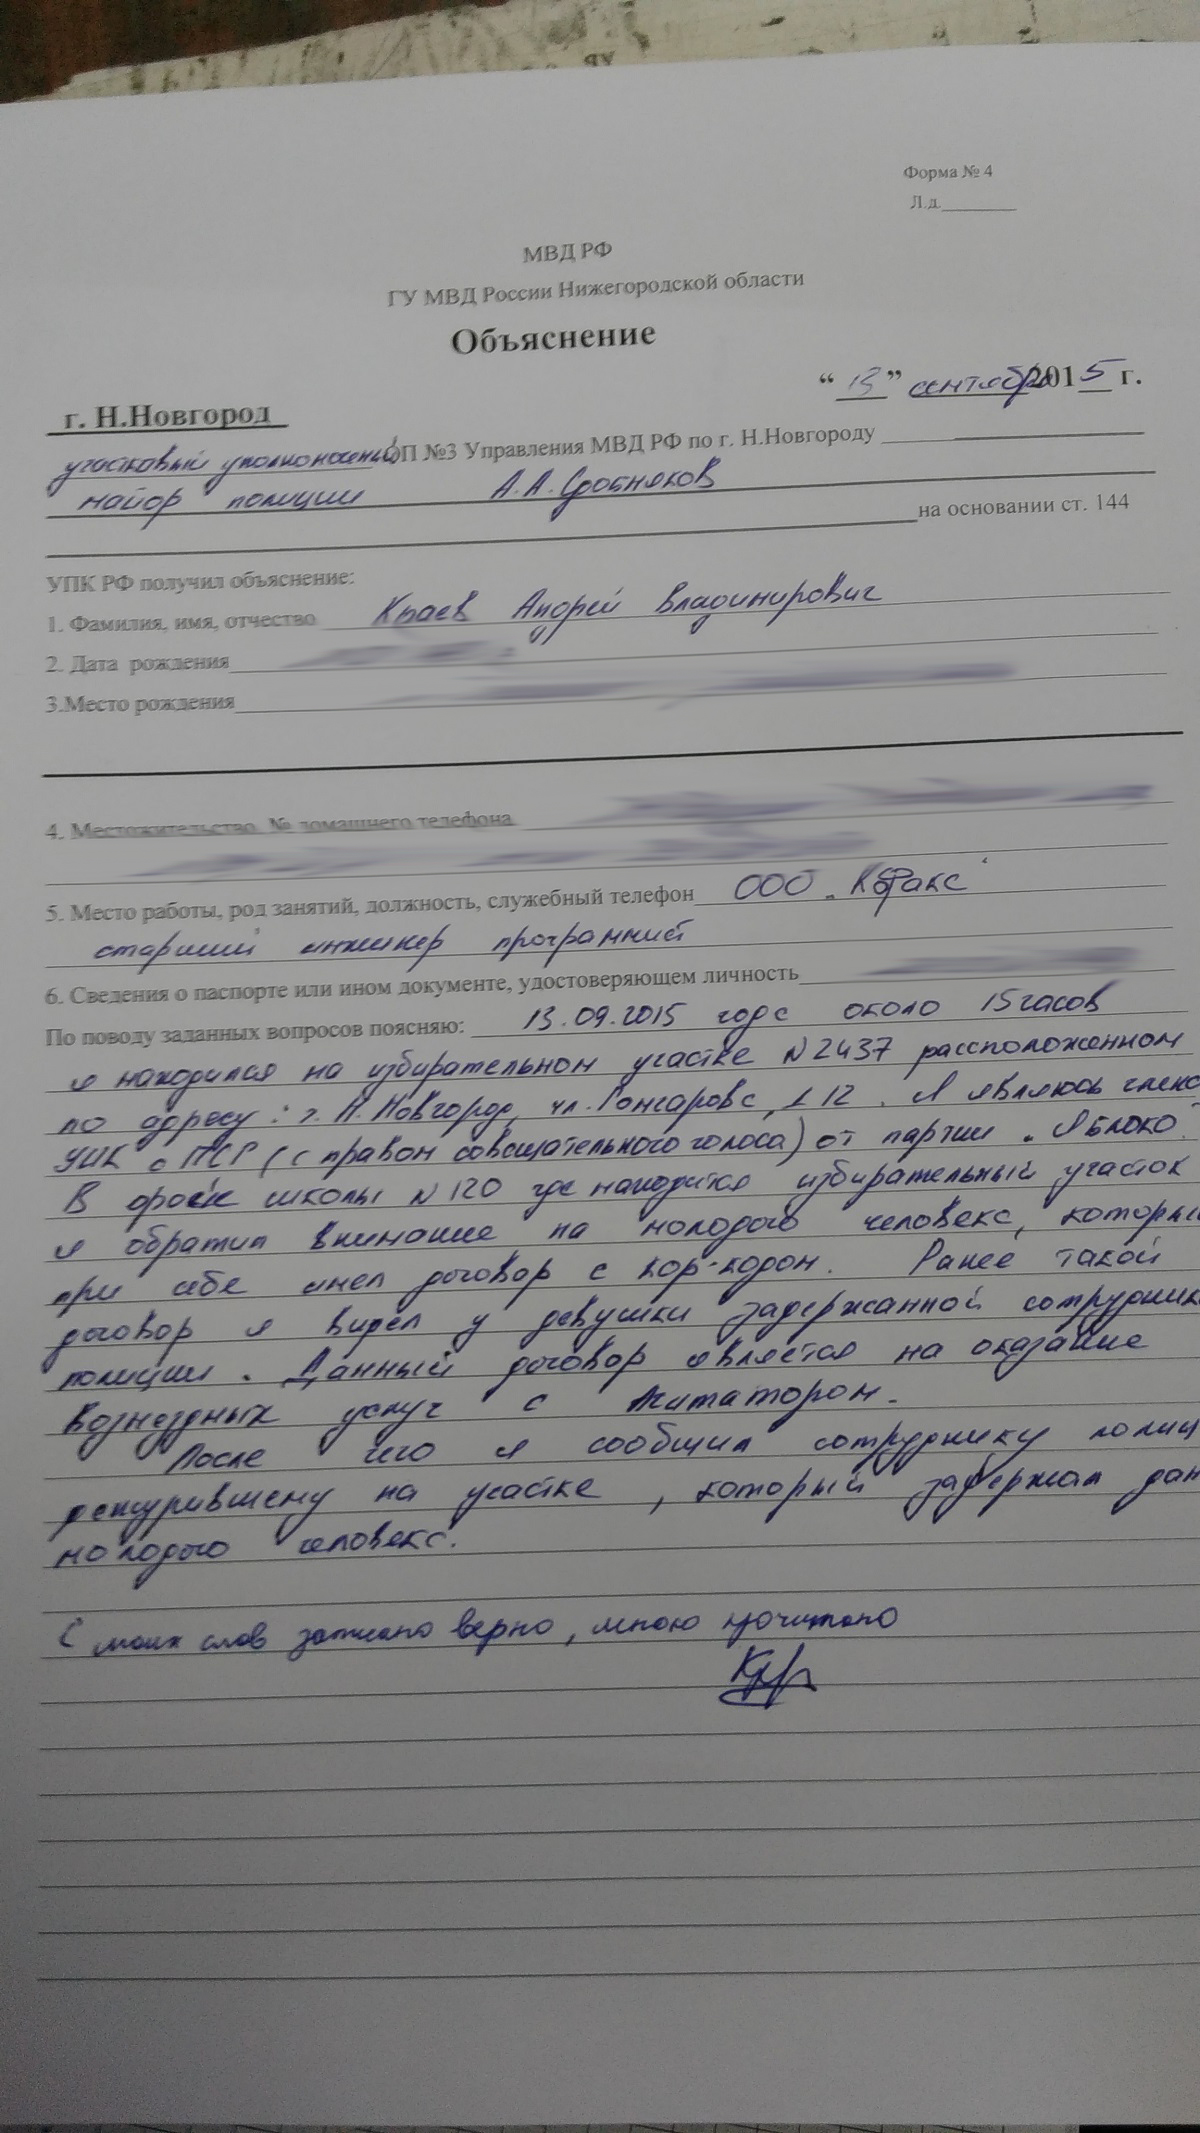 Форма № 4
Л.д.
МВД РФ
ГУ МВД России Нижегородской области
Объяснение
“ 13 ” сентября 2015 г.
г. Н.Новгород
участковый уполномоченный ОП №3 Управления МВД РФ по г. Н.Новгороду
майор полиции А.А.
на основании ст. 144
УПК РФ получил объяснение:
1. Фамилия, имя, отчество Краев Андрей Владимирович
2. Дата рождения
3.Место рождения
4. Местожительство, № домашнего телефона
5. Место работы, род занятий, должность, служебный телефон ООО
старший инженер програмист
6. Сведения о паспорте или ином документе, удостоверяющем личность
По поводу заданных вопросов поясняю: 13.09.2015 года около 15 часов
я находился на избирательном участке N 2437 рассположенном
по адресу: г. Н.Новгород, ул. Гончарова, д 12. Я являюсь
УИК с ПСГ (с правом совещательного голоса) от партии „Яблоко“.
В фойе школы N 120 где находится избирательный участок
я обратил внимание на молодого человека, который
при себе имел договор с кор-кодом. Ранее такой
договор я видел у девушки задержанной
полиции. Данный договор является на оказание
возмездных услуг с Агитатором.
После чего я сообщил сотруднику
дежурившему на участке, который задержал
молодого человека.
С моих слов записано верно, мною прочитано